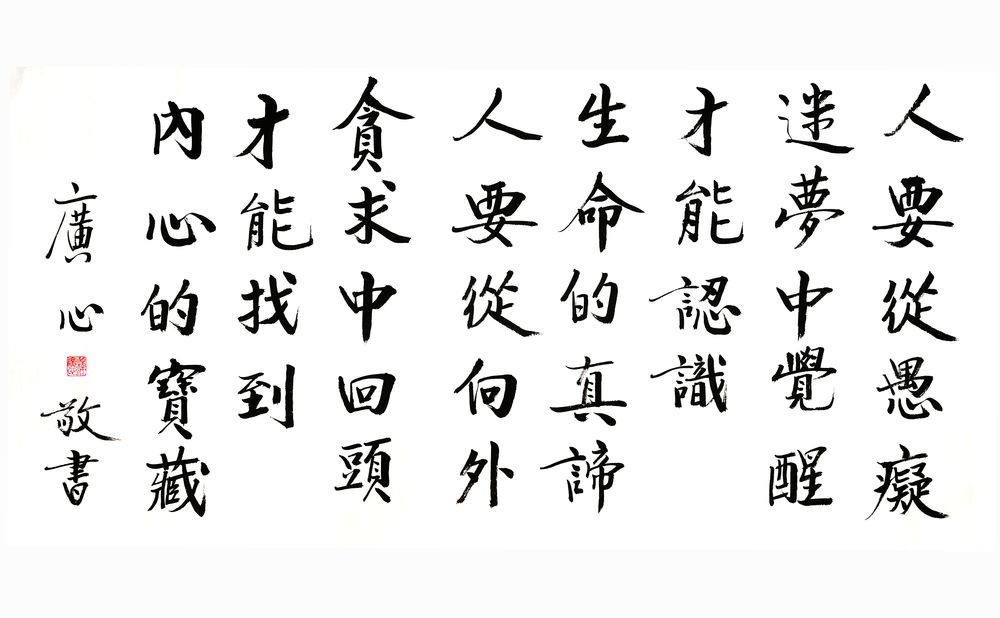 人要從愚癡
迷夢中覺醒
才能認識
生命的真諦
人要從向外
貪求中回頭
才能找到
內心的寶藏
廣心敬書